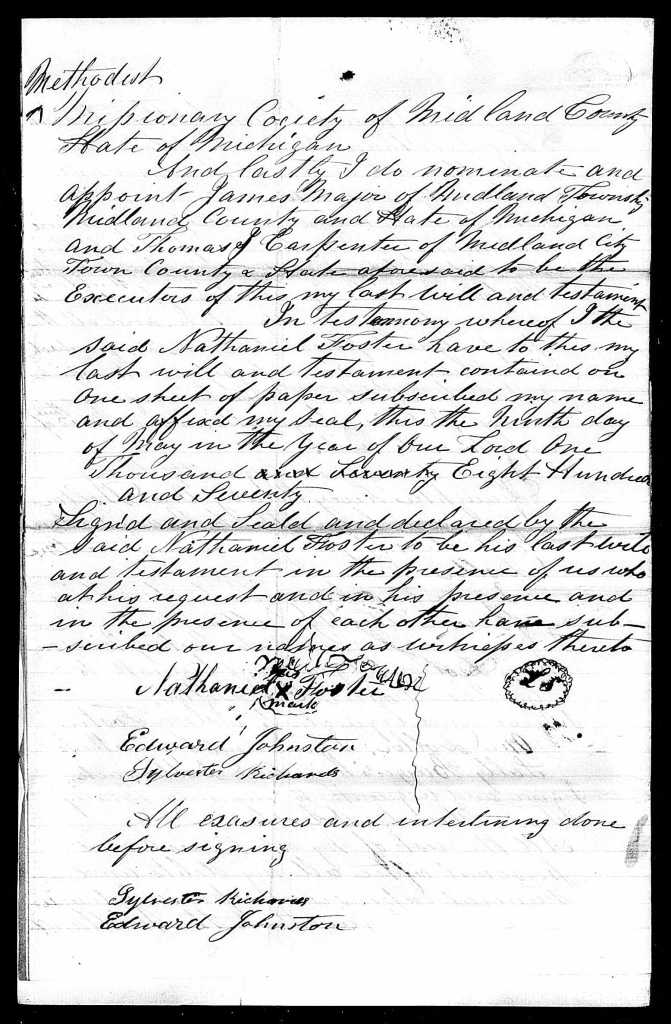 Methodist
^ Missionary Cociety of Midland County
State of Michigan
And lastly I do nominate and
appoint James Major of Midland Township
Midland County and State of Michigan
and Thomas J Carpenter of Midland City
Town County & State aforesaid to be the
Executors of this my last will and testament
In testemony whereof I the
said Nathaniel Foster have to this my
last will and testament containd on
one sheet of paper subscribed my name
and affixd my seal, this the Ninth day
of May in the Year of Our Lord One
Thousand and Seventy Eight Hundred
and Seventy
Signd and Seald and declared by the
said Nathaniel Foster to be his last will
and testament in the presence of us who
at his request and in his presence and
in the presence of each other have sub-
-scribed our names as witnesses thereto
his
-- Nathaniel X Foster
mark
LS
Edward Johnston
Sylvester Richards
All erasures and interlining done
before signing
Sylvester Richards
Edward Johnston